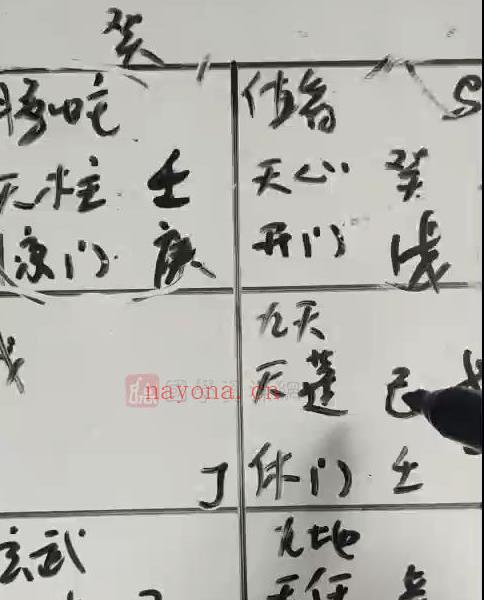 癸
腾蛇 值符
天柱 壬 天心 癸
惊门 庚 开门 戊
九天
天蓬 己
nayona.cn
丁 休门 壬
玄武 九地
天任